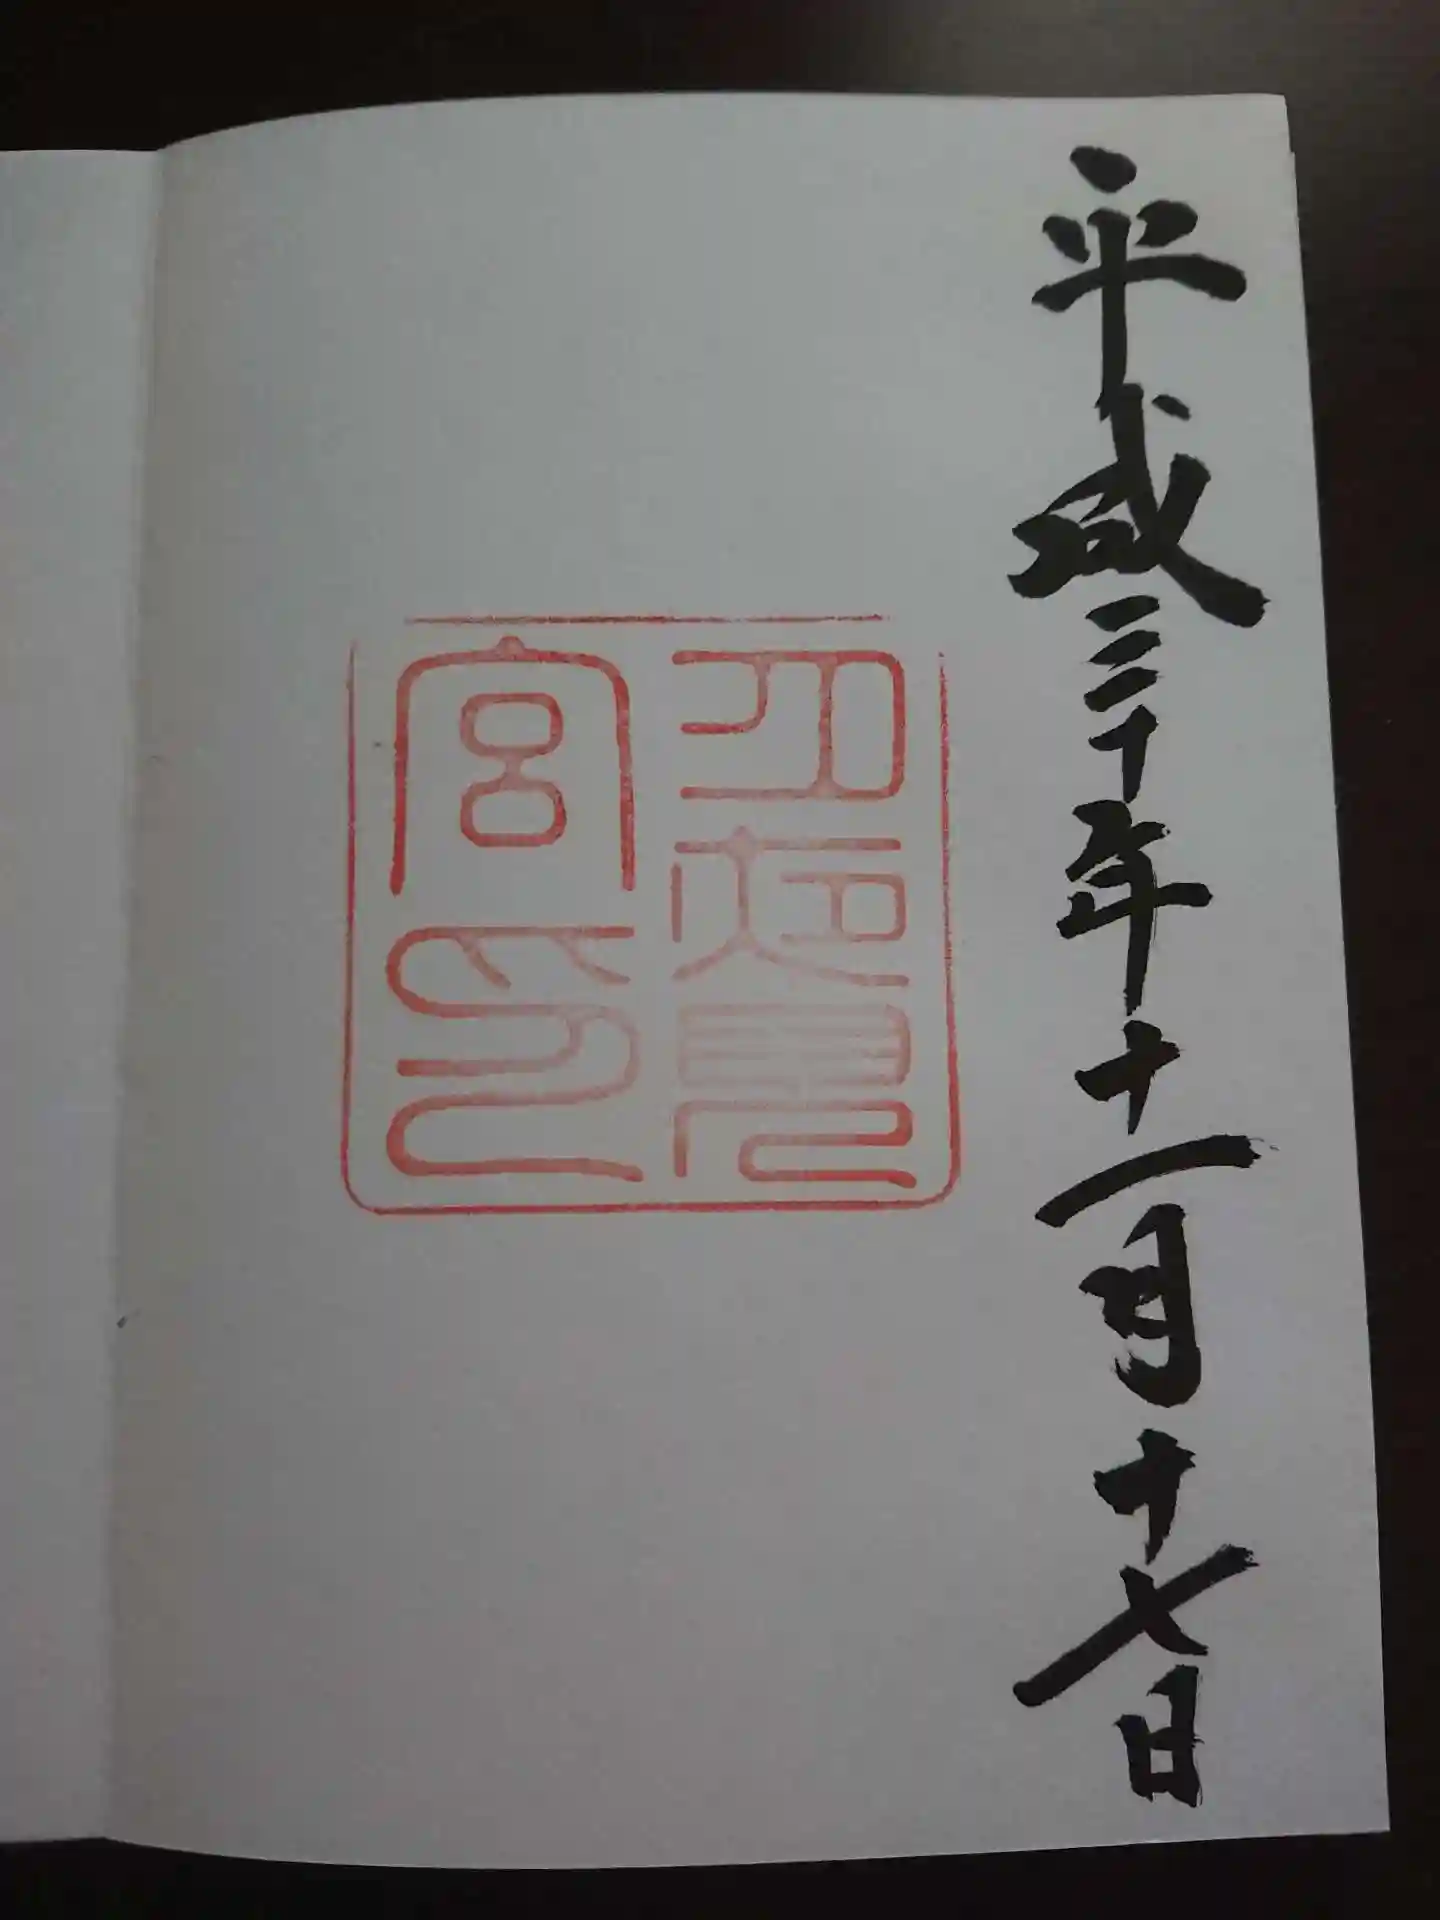 平成三十年十一月十七日
月夜見
宮印